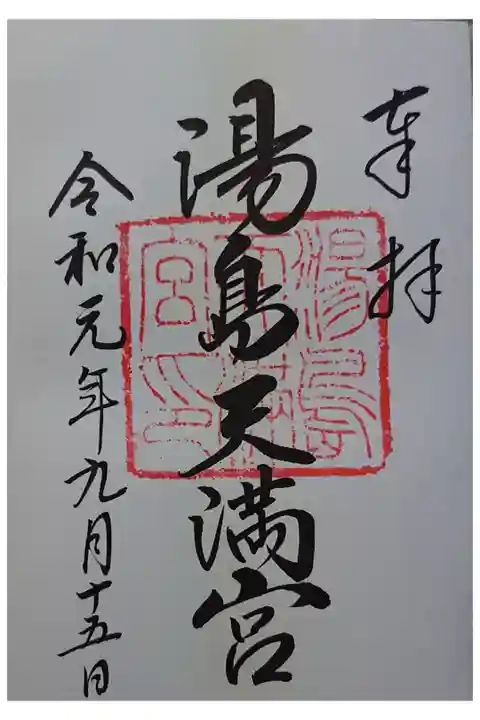 奉拝
湯島天満宮
令和元年九月十五日
湯島天満宮印